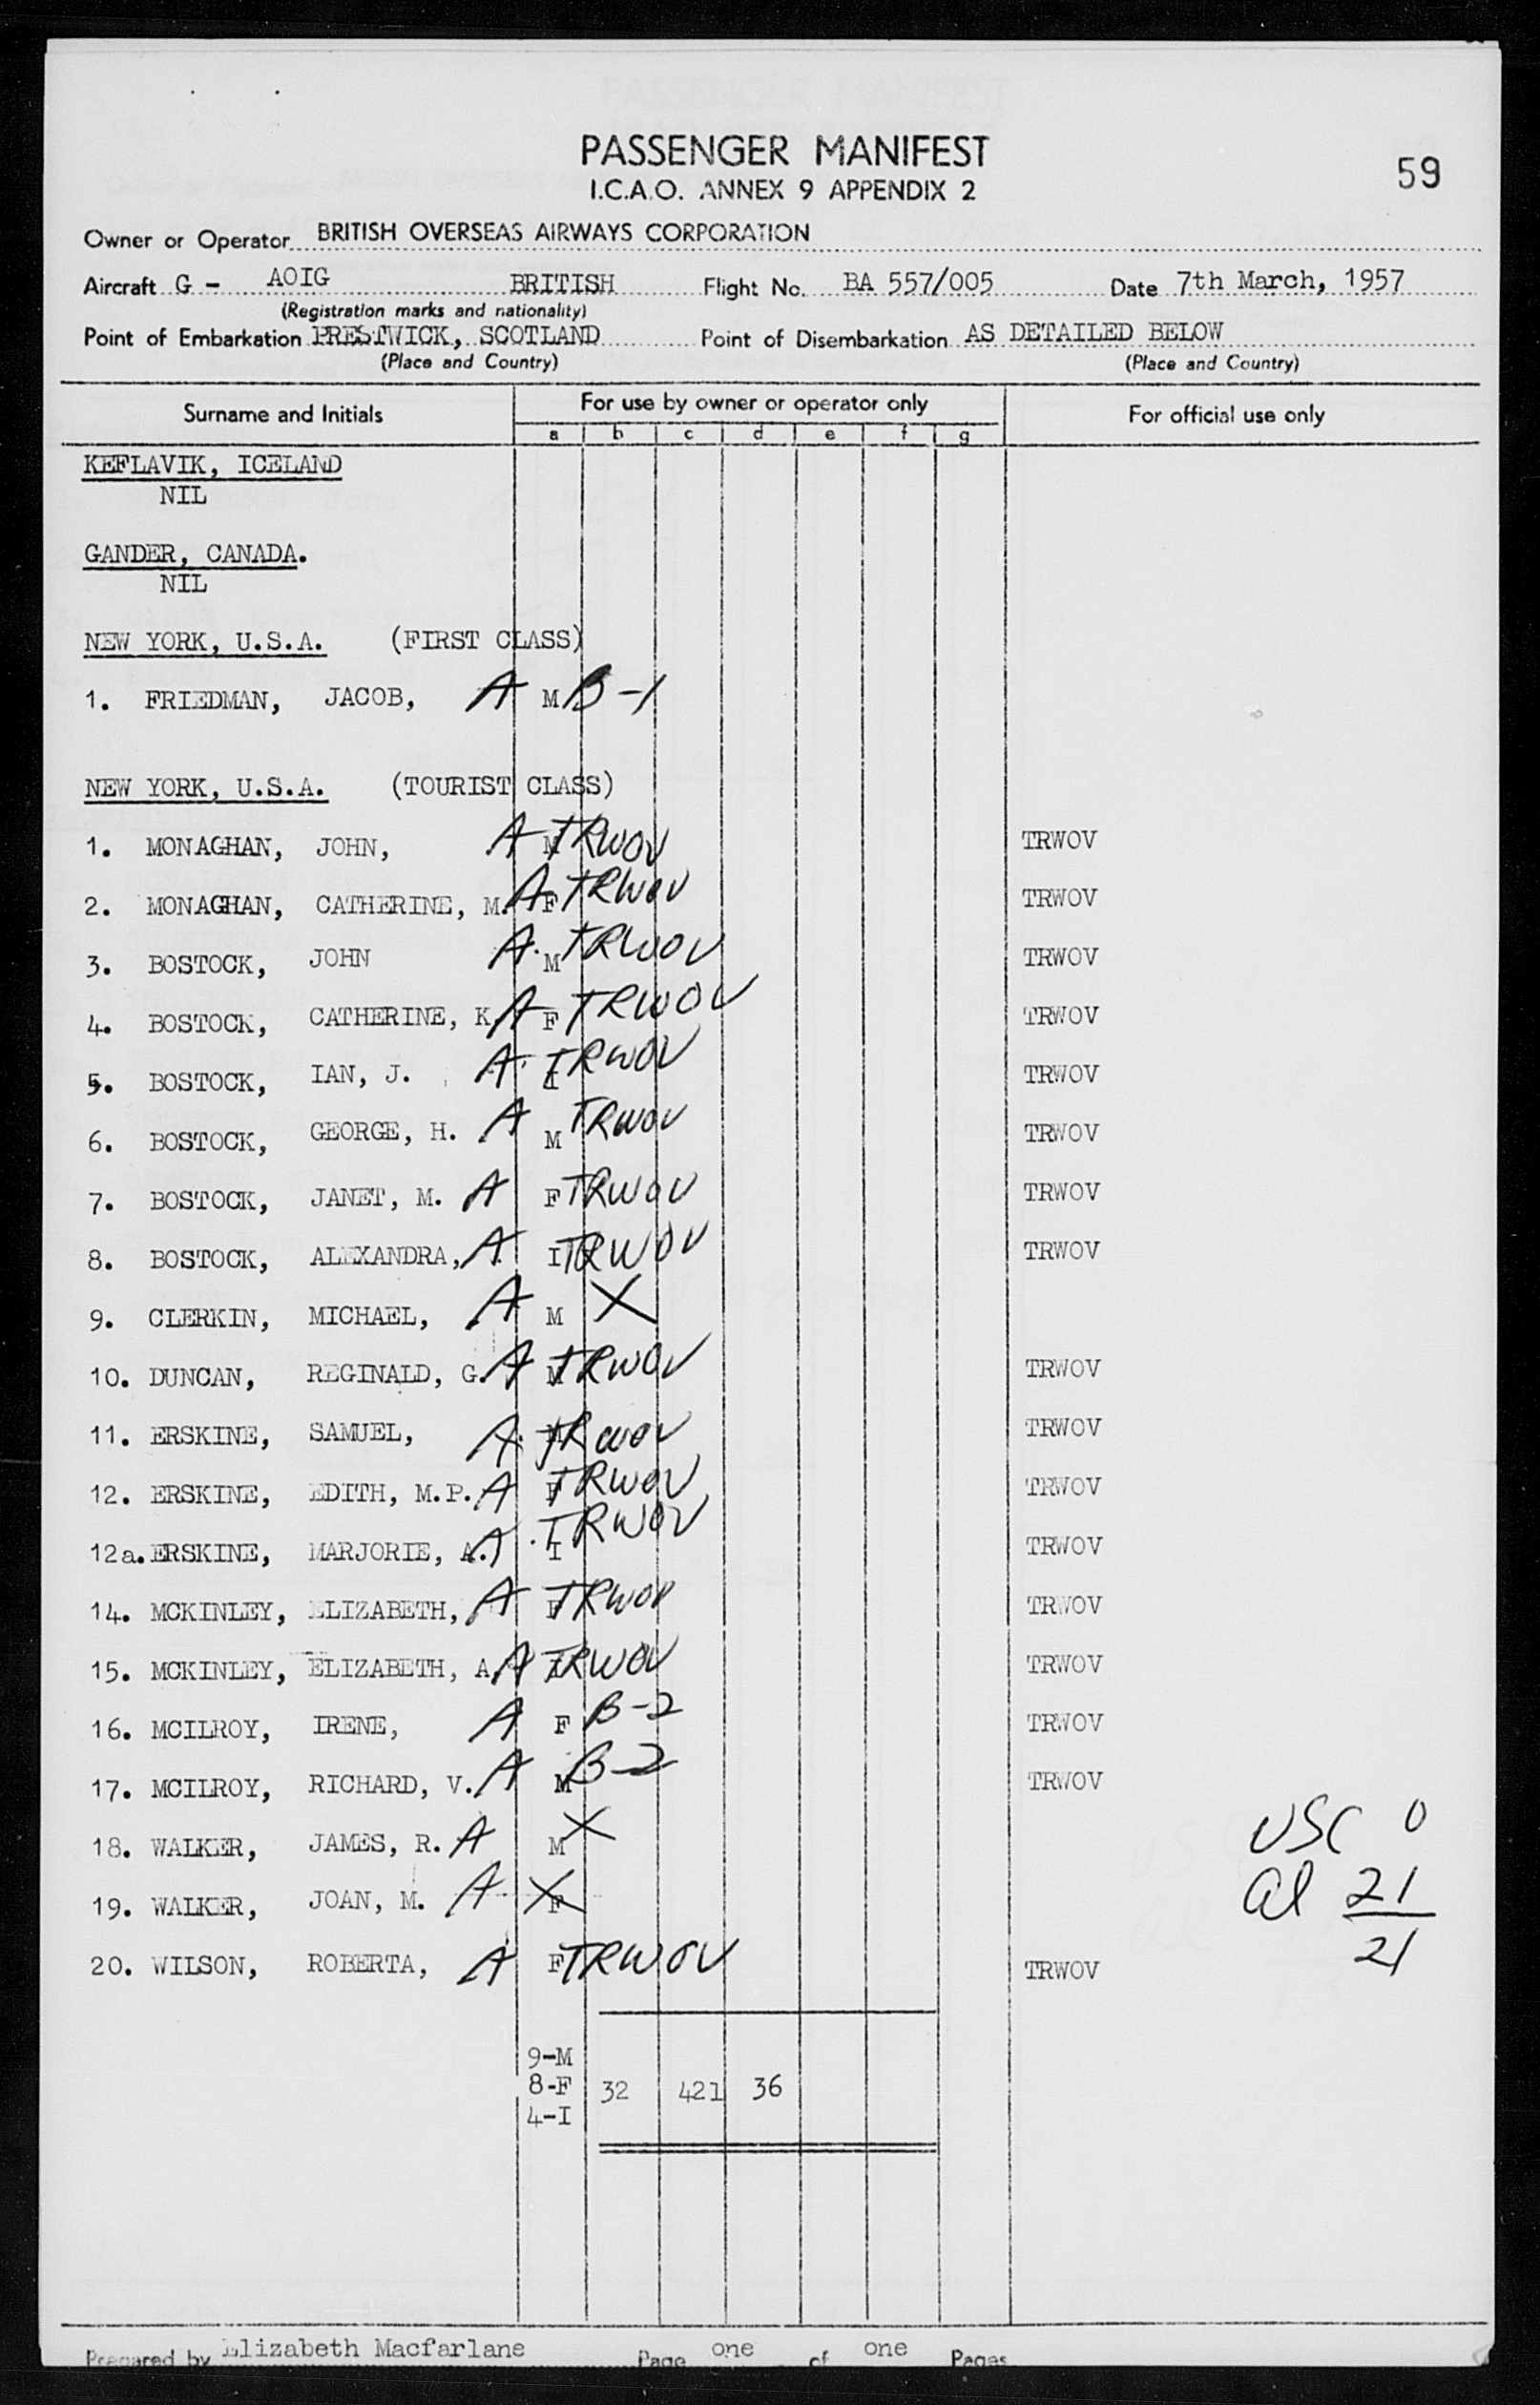 PASSENGER MANIFEST
I.C.A.O. ANNEX 9 APPENDIX 2
59
Owner or Operator BRITISH OVERSEAS AIRWAYS CORPORATION
Aircraft G - AOIG BRITISH Flight No. BA 557/005 Date 7th March, 1957
(Registration marks and nationality)
Point of Embarkation PRESTWICK, SCOTLAND Point of Disembarkation AS DETAILED BELOW
(Place and Country) (Place and Country)
Surname and Initials For use by owner or operator only For official use only
a b c d e f g
KEFLAVIK, ICELAND
NIL
GANDER, CANADA.
NIL
NEW YORK, U.S.A. (FIRST CLASS)
1. FRIEDMAN, JACOB, A M B-1
NEW YORK, U.S.A. (TOURIST CLASS)
1. MONAGHAN, JOHN, A M TRWOV TRWOV
2. MONAGHAN, CATHERINE, M. A F TRWOV TRWOV
3. BOSTOCK, JOHN A. M TRWOV TRWOV
4. BOSTOCK, CATHERINE, K. A F TRWOV TRWOV
5. BOSTOCK, IAN, J. A. I TRWOV TRWOV
6. BOSTOCK, GEORGE, H. A M TRWOV TRWOV
7. BOSTOCK, JANET, M. A F TRWOV TRWOV
8. BOSTOCK, ALEXANDRA, A I TRWOV TRWOV
9. CLERKIN, MICHAEL, A M X
10. DUNCAN, REGINALD, G. A M TRWOV TRWOV
11. ERSKINE, SAMUEL, A. M TRWOV TRWOV
12. ERSKINE, EDITH, M.P. A F TRWOV TRWOV
12a. ERSKINE, MARJORIE, A. A I TRWOV TRWOV
14. MCKINLEY, ELIZABETH, A F TRWOV TRWOV
15. MCKINLEY, ELIZABETH, A. A I TRWOV TRWOV
16. MCILROY, IRENE, A F B-2 TRWOV
17. MCILROY, RICHARD, V. A M B-2 TRWOV
18. WALKER, JAMES, R. A M X
19. WALKER, JOAN, M. A. F X
20. WILSON, ROBERTA, A F TRWOV TRWOV
USC 0
al 21
21
9-M
8-F 32 421 36
4-I
Prepared by Elizabeth Macfarlane Page one of one Pages